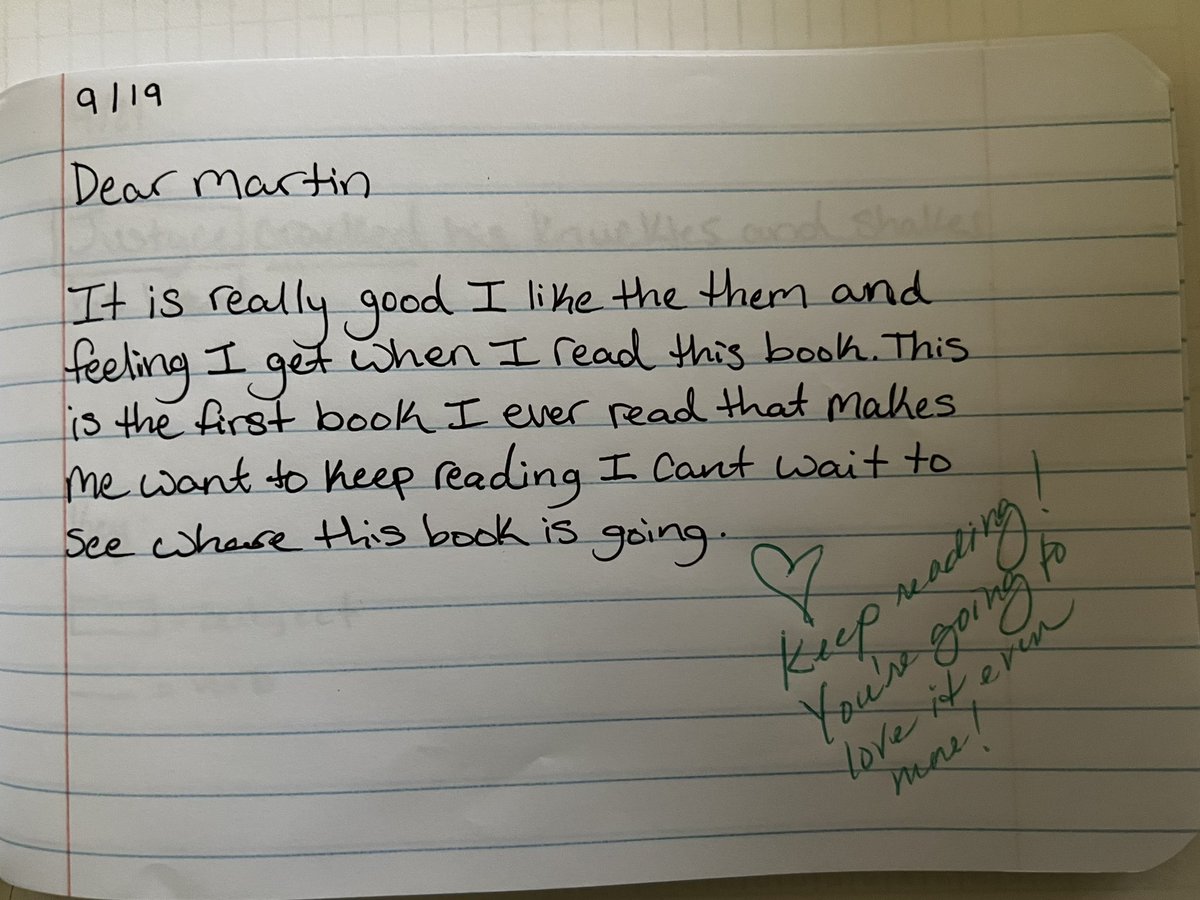 9/19
Dear Martin
It is really good I like the them and
feeling I get when I read this book. This
is the first book I ever read that makes
me want to keep reading I cant wait to
see where this book is going.
Keep reading!
You're going to
love it even
more!